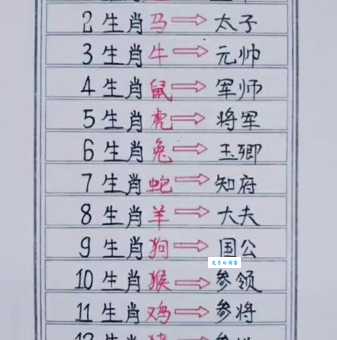 2 生肖马⇒太子
3 生肖牛⇒元帅
4 生肖鼠⇒军师
5 生肖虎⇒将军
6 生肖兔⇒玉卿
7 生肖蛇⇒知府
8 生肖羊⇒大夫
9 生肖狗⇒国公
10 生肖猴⇒参领
11 生肖鸡⇒参将